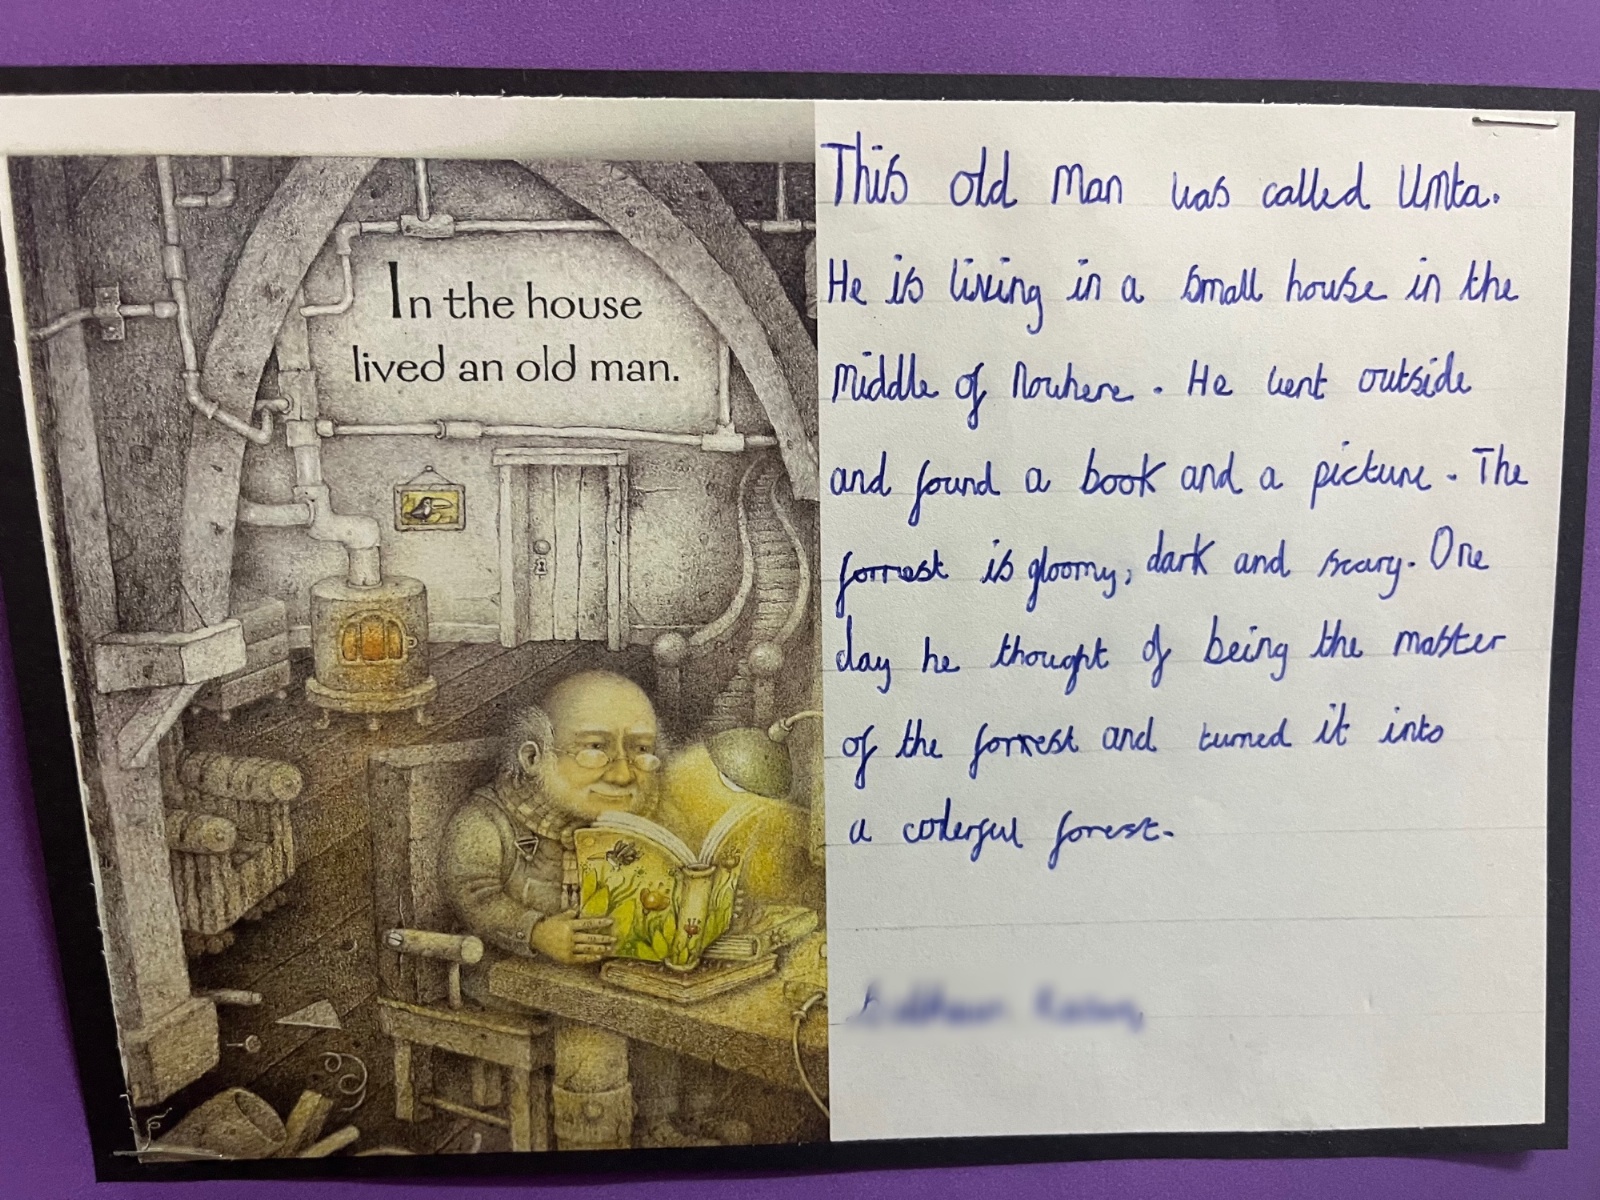 In the house
lived an old man.
This old man was called Umta.
He is living in a small house in the
middle of nowhere. He went outside
and found a book and a picture. The
forrest is gloomy, dark and scary. One
day he thought of being the master
of the forrest and turned it into
a colerful forest.